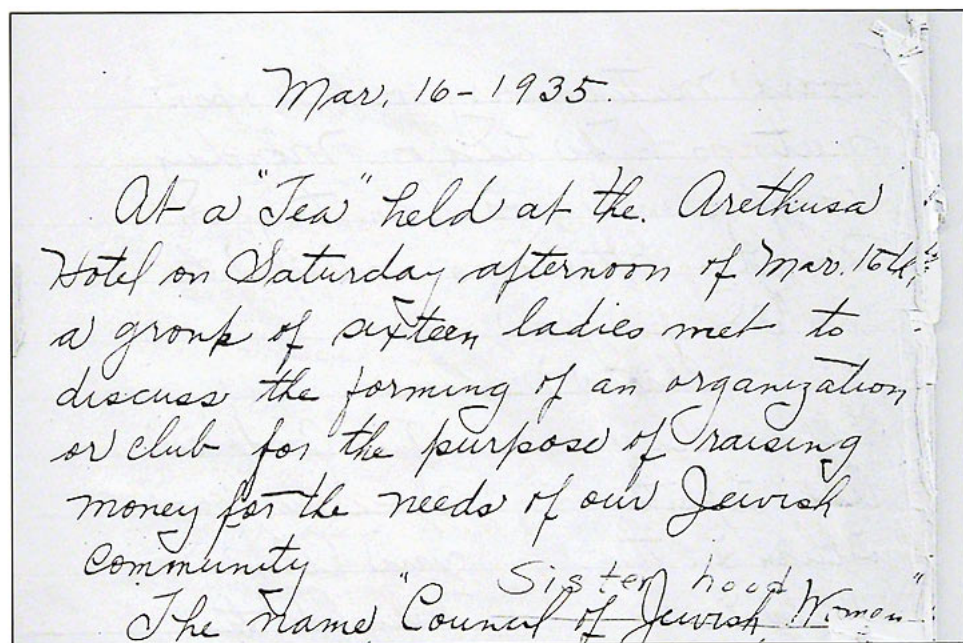 Mar. 16 - 1935.
At a "Tea" held at the Arethusa
Hotel on Saturday afternoon of Mar. 16th,
a group of sixteen ladies met to
discuss the forming of an organization
or club for the purpose of raising
money for the needs of our Jewish
community
Sister hood
The name "Council of Jewish Women"